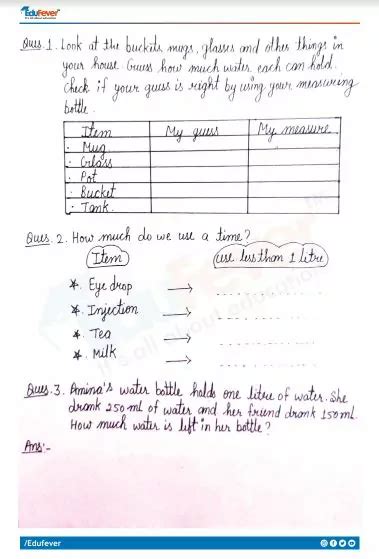 EduFever
It's all about education
Ques. 1. Look at the buckets, mugs, glasses and other things in
your house. Guess how much water each can hold.
Check if your guess is right by using your measuring
bottle.
Item My guess My measure
· Mug
· Glass
· Pot
· Bucket
· Tank.
Ques. 2. How much do we use a time?
Item use less than 1 litre
*. Eye drop → ............
*. Injection → ............
*. Tea → ............
*. Milk → ............
Ques. 3. Amina's water bottle holds one litre of water. She
drank 250 ml of water and her friend drank 150 ml.
How much water is left in her bottle?
Ans:-
/Edufever